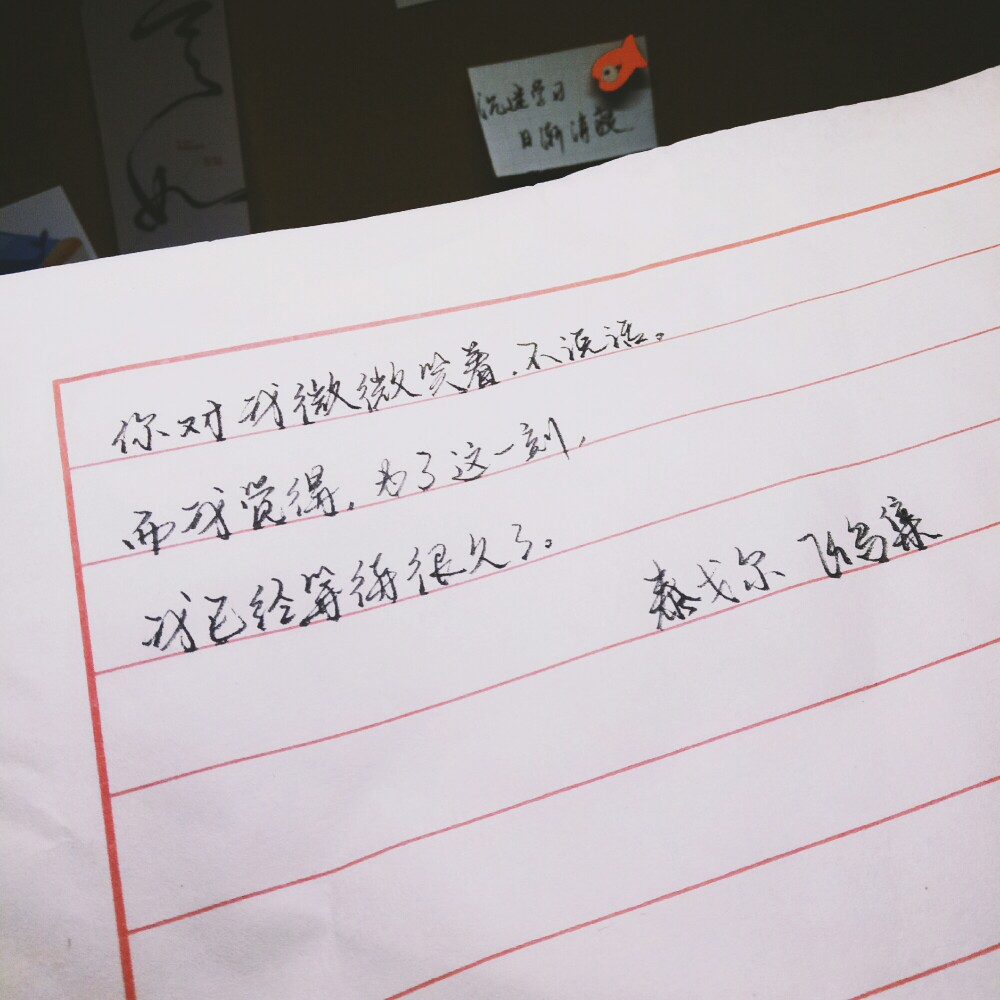 沉迷学习
日渐消瘦
你对我微微笑着,不说话。
而我觉得,为了这一刻,
我已经等待很久了。
泰戈尔 飞鸟集